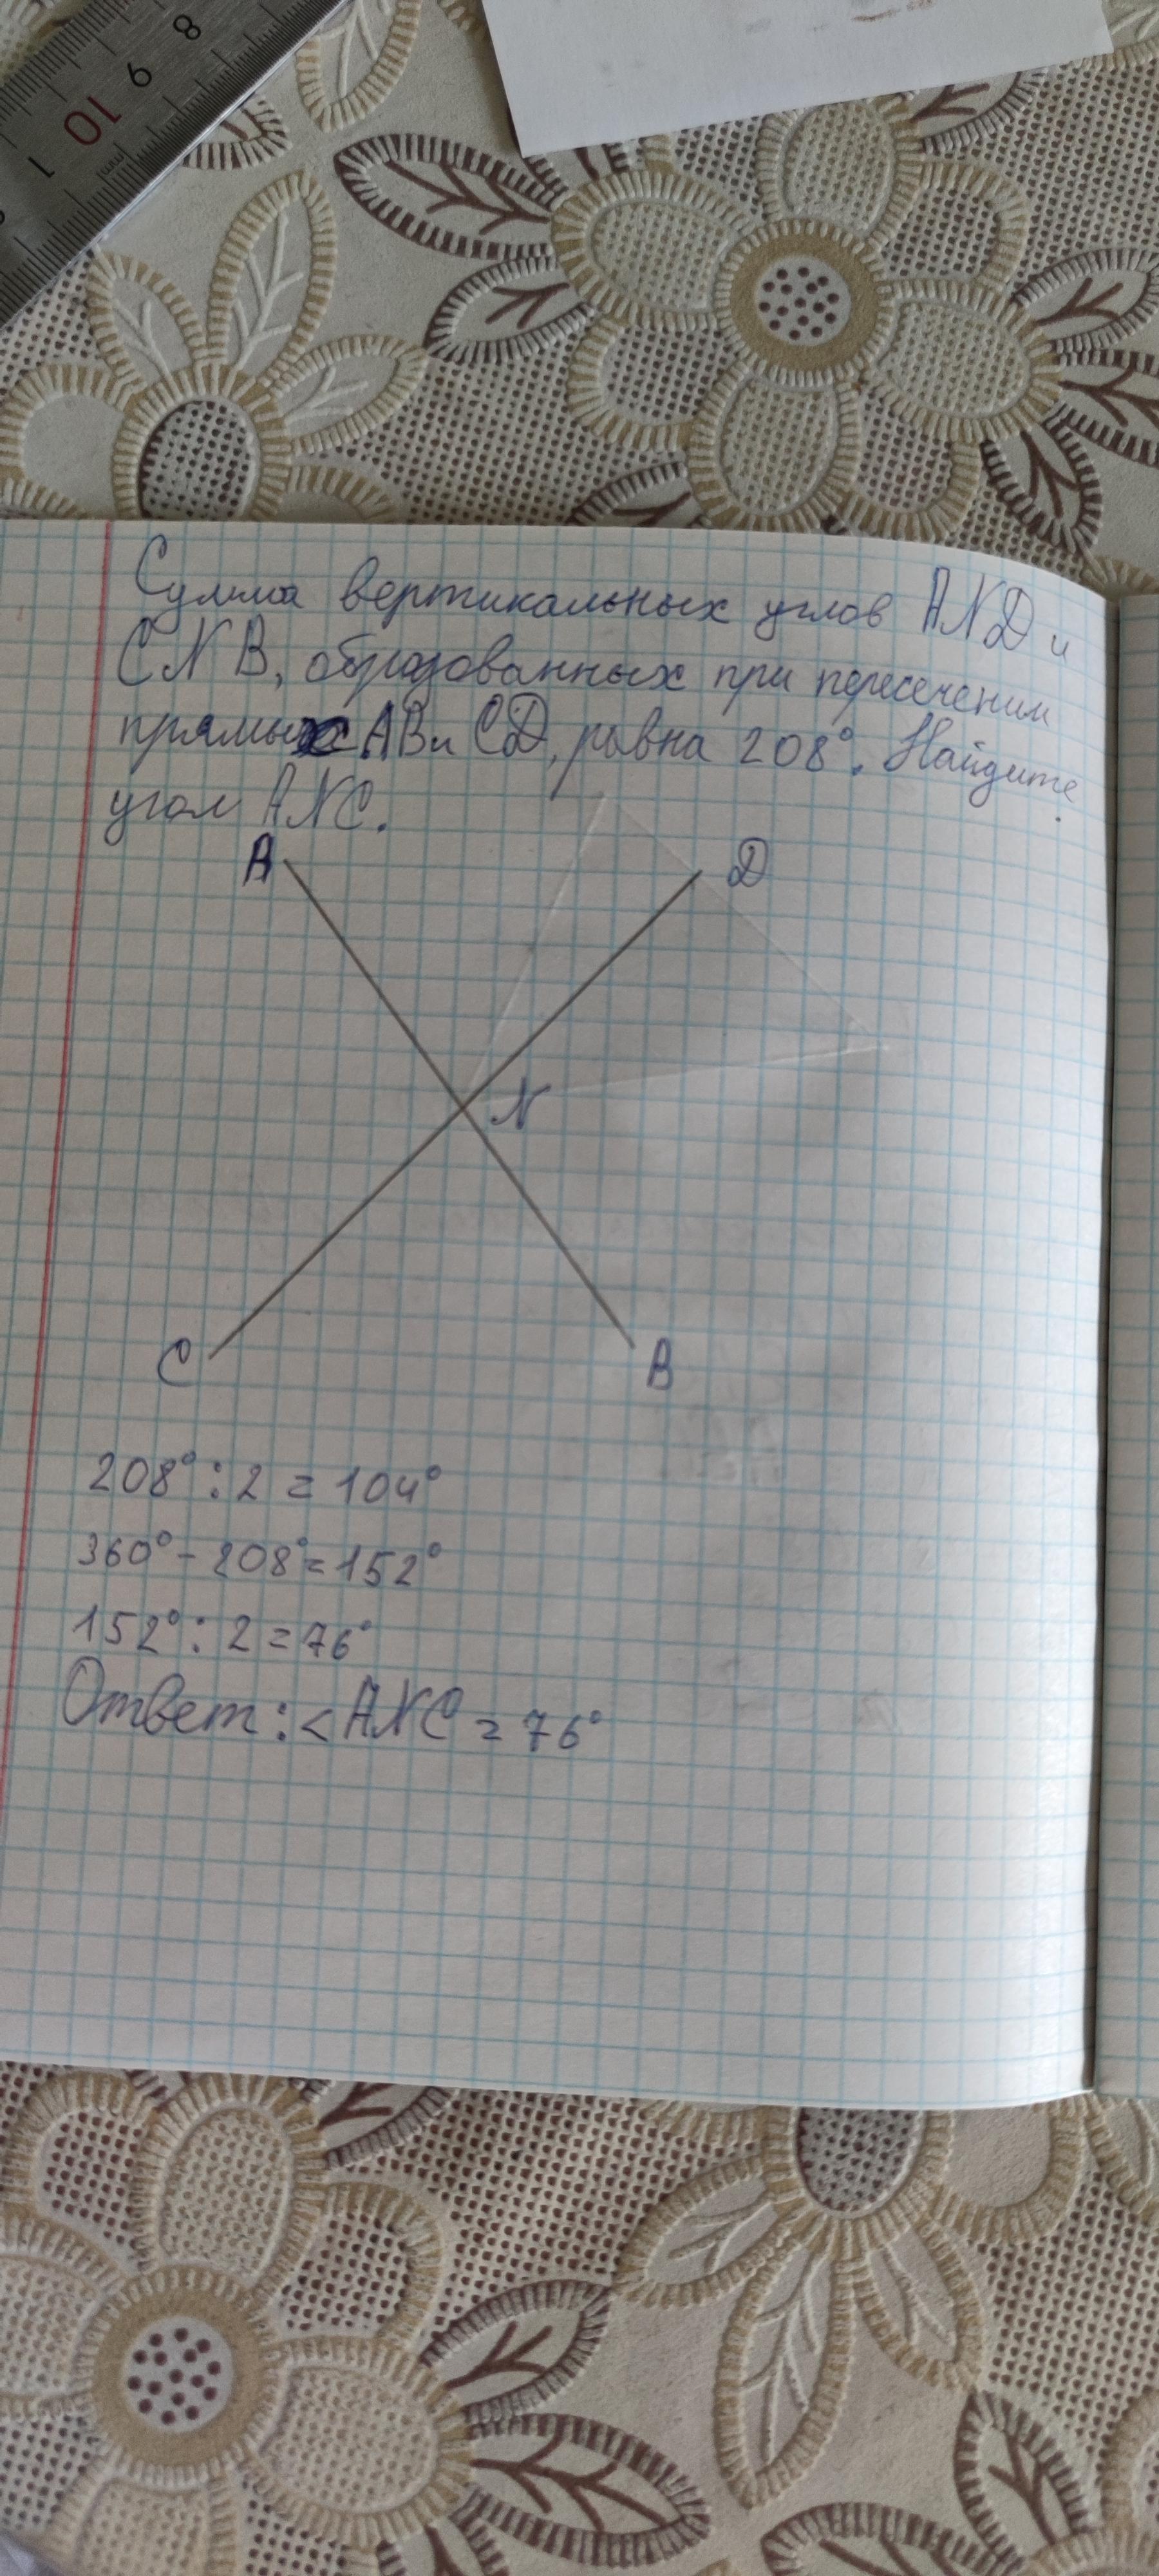 8
9
10
1
mm
Сумма вертикальных углов AND и
CNB, образованных при пересечении
прямых AB и CD, равна 208°. Найдите
угол ANC.
A
D
N
C
B
208° : 2 = 104°
360° - 208° = 152°
152° : 2 = 76°
Ответ: < ANC = 76°